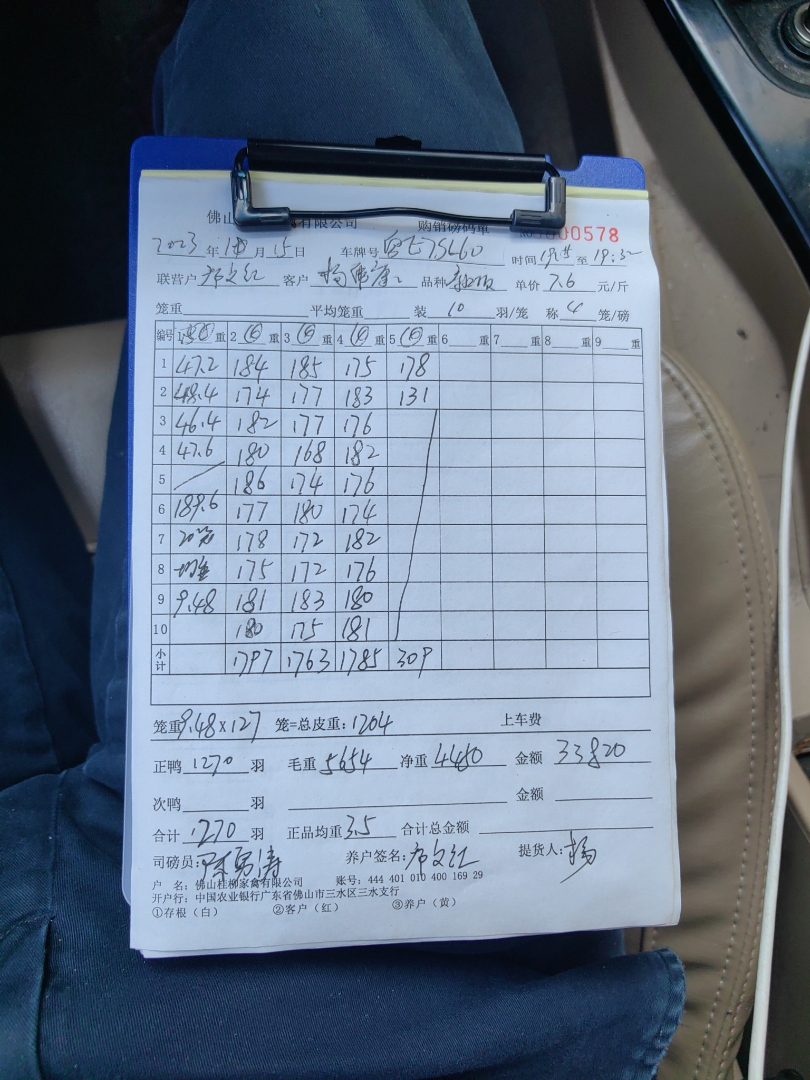 佛山 禽有限公司 购销磅码单 000578
2023 年 10 月 15 日 车牌号 75L60 时间 至 19:32
联营户 客户 杨 品种 单价 7.6 元/斤
笼重 平均笼重 装 10 羽/笼 称 4 笼/磅
编号 1 重 2 ⑥ 重 3 ⑥ 重 4 ⑥ 重 5 ⑥ 重 6 重 7 重 8 重 9 重
1 47.2 184 185 175 178
2 48.4 174 177 183 131
3 46.4 182 177 176
4 47.6 180 168 182
5 186 174 176
6 189.6 177 180 174
7 20笼 178 172 182
8 均重 175 172 176
9 9.48 181 183 180
10 180 175 181
小计 1797 1763 1785 309
笼重 9.48 x 127 笼=总皮重: 1204 上车费
正鸭 1270 羽 毛重 5654 净重 4450 金额 33820
次鸭 羽 金额
合计 1270 羽 正品均重 3.5 合计总金额
司磅员: 养户签名: 提货人: 杨
户 名: 佛山桂柳家禽有限公司 账号: 444 401 010 400 169 29
开户行: 中国农业银行广东省佛山市三水区三水支行
①存根(白) ②客户(红) ③养户(黄)